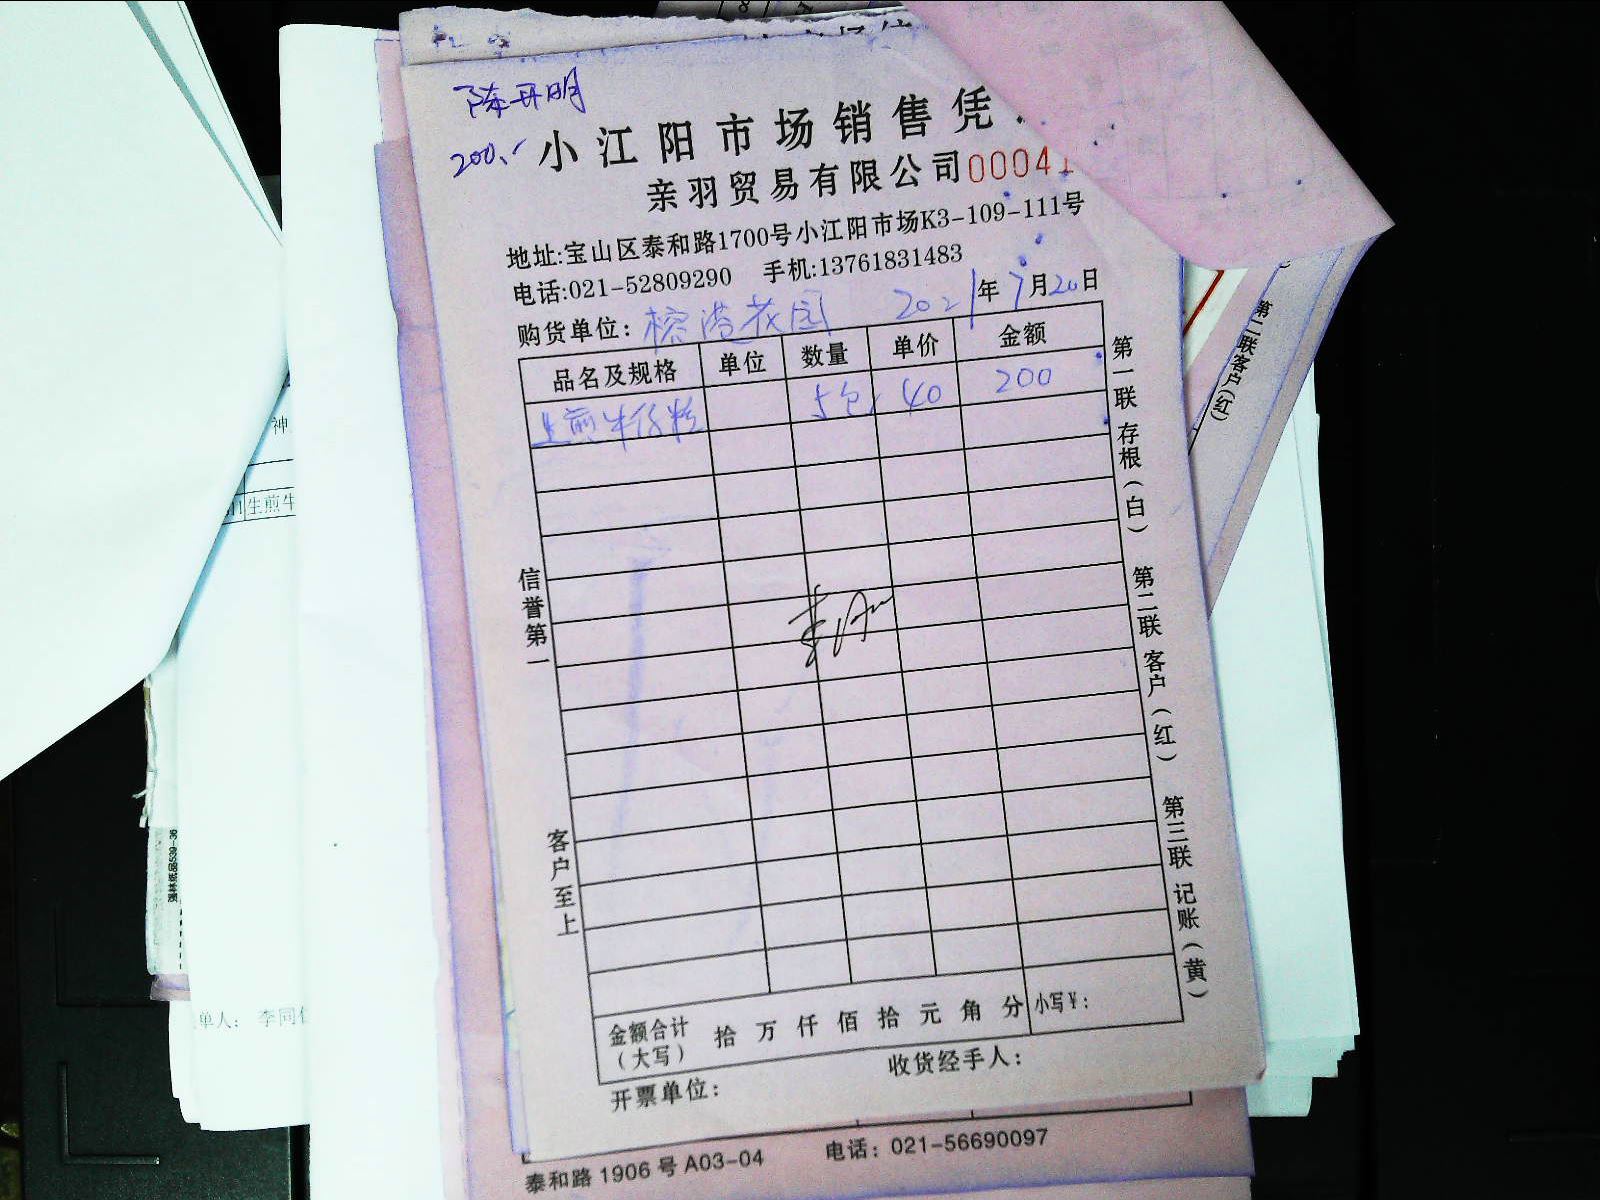 陈开明
200.-
小江阳市场销售凭
亲羽贸易有限公司 00041
地址:宝山区泰和路1700号小江阳市场K3-109-111号
电话:021-52809290 手机:13761831483
购货单位: 榕港花园 2021年7月20日
品名及规格 单位 数量 单价 金额
生煎牛仔粒 5包 40 200
信誉第一
客户至上
第一联 存根(白) 第二联 客户(红) 第三联 记账(黄)
金额合计(大写) 拾 万 仟 佰 拾 元 角 分 小写¥:
开票单位: 收货经手人:
泰和路 1906 号 A03-04 电话: 021-56690097
第二联客户(红)
神
生煎牛
单人: 李同